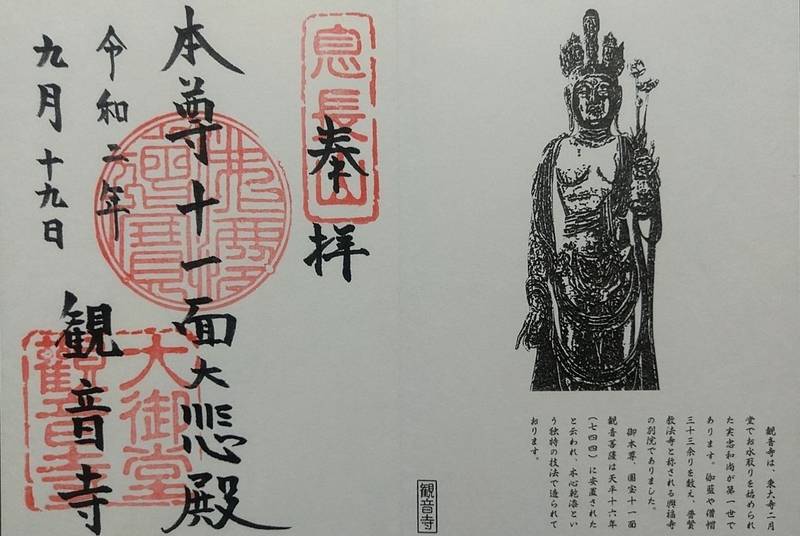 奉拝
息長山
本尊十一面大悲殿
令和二年
九月十九日
観音寺
大御堂
觀音寺
観音寺は、東大寺二月
堂でお水取りを始められ
た実忠和尚が第一世で
あります。伽藍や僧帽
三十三余りを数え、普賢
教法寺と称される興福寺
の別院でありました。
御本尊、国宝十一面
観音菩薩は天平十六年
(七四四)に安置された
と云われ、木心乾漆とい
う独特の技法で造られて
おります。
観音寺